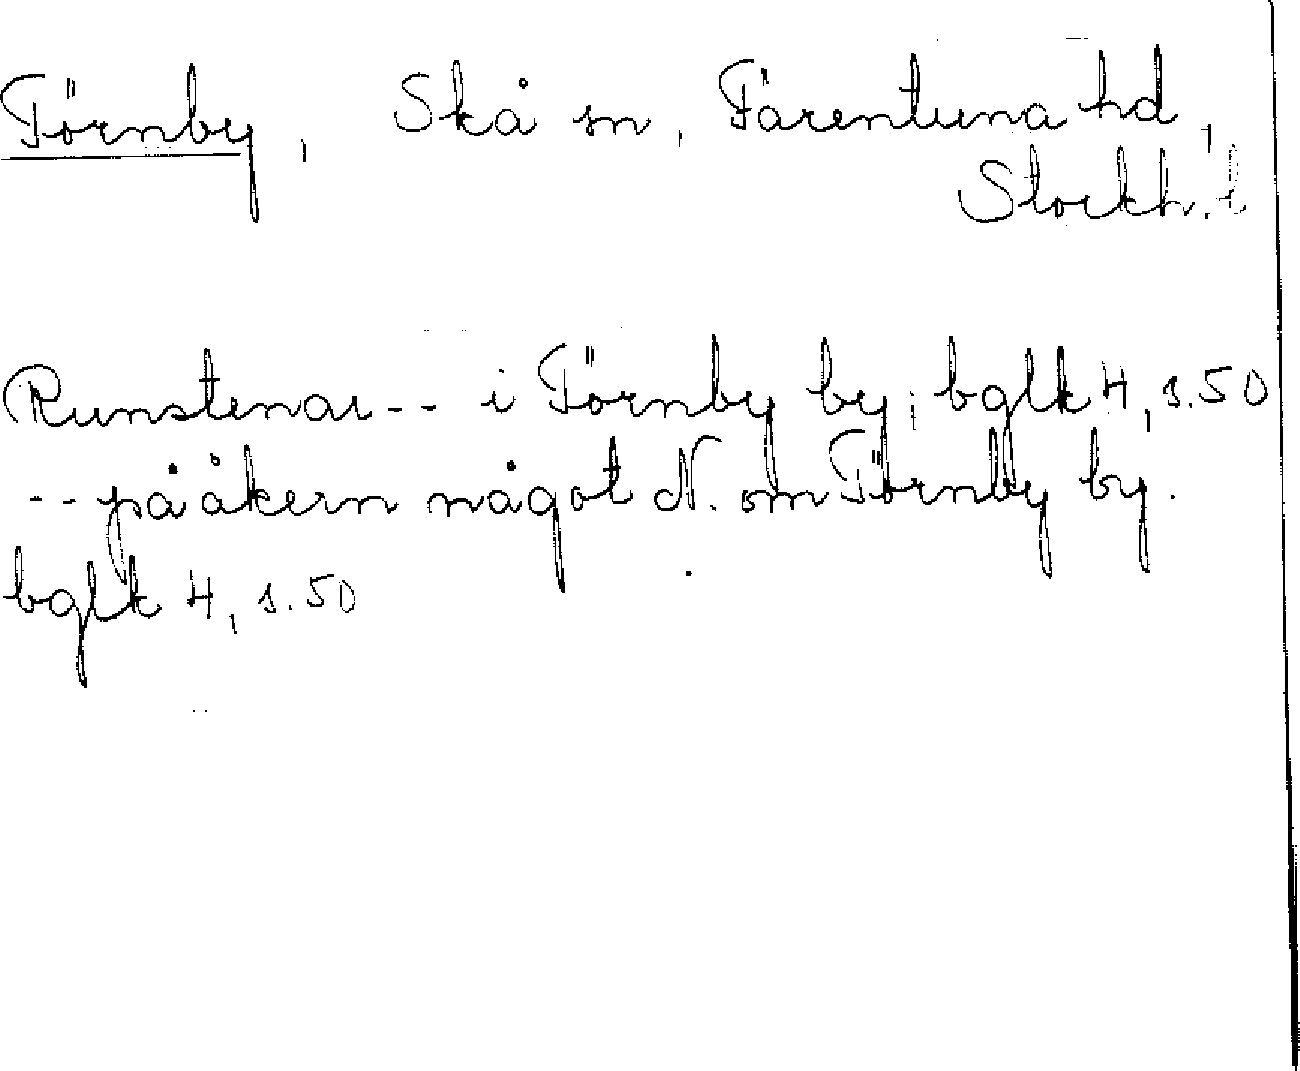 Törnby, Skå sn, Färentuna hd,
Stockh. l
Runstenar -- i Törnby by; bglk 4, s. 50
-- på åkern något N. om Törnby by.
bglk 4, s. 50